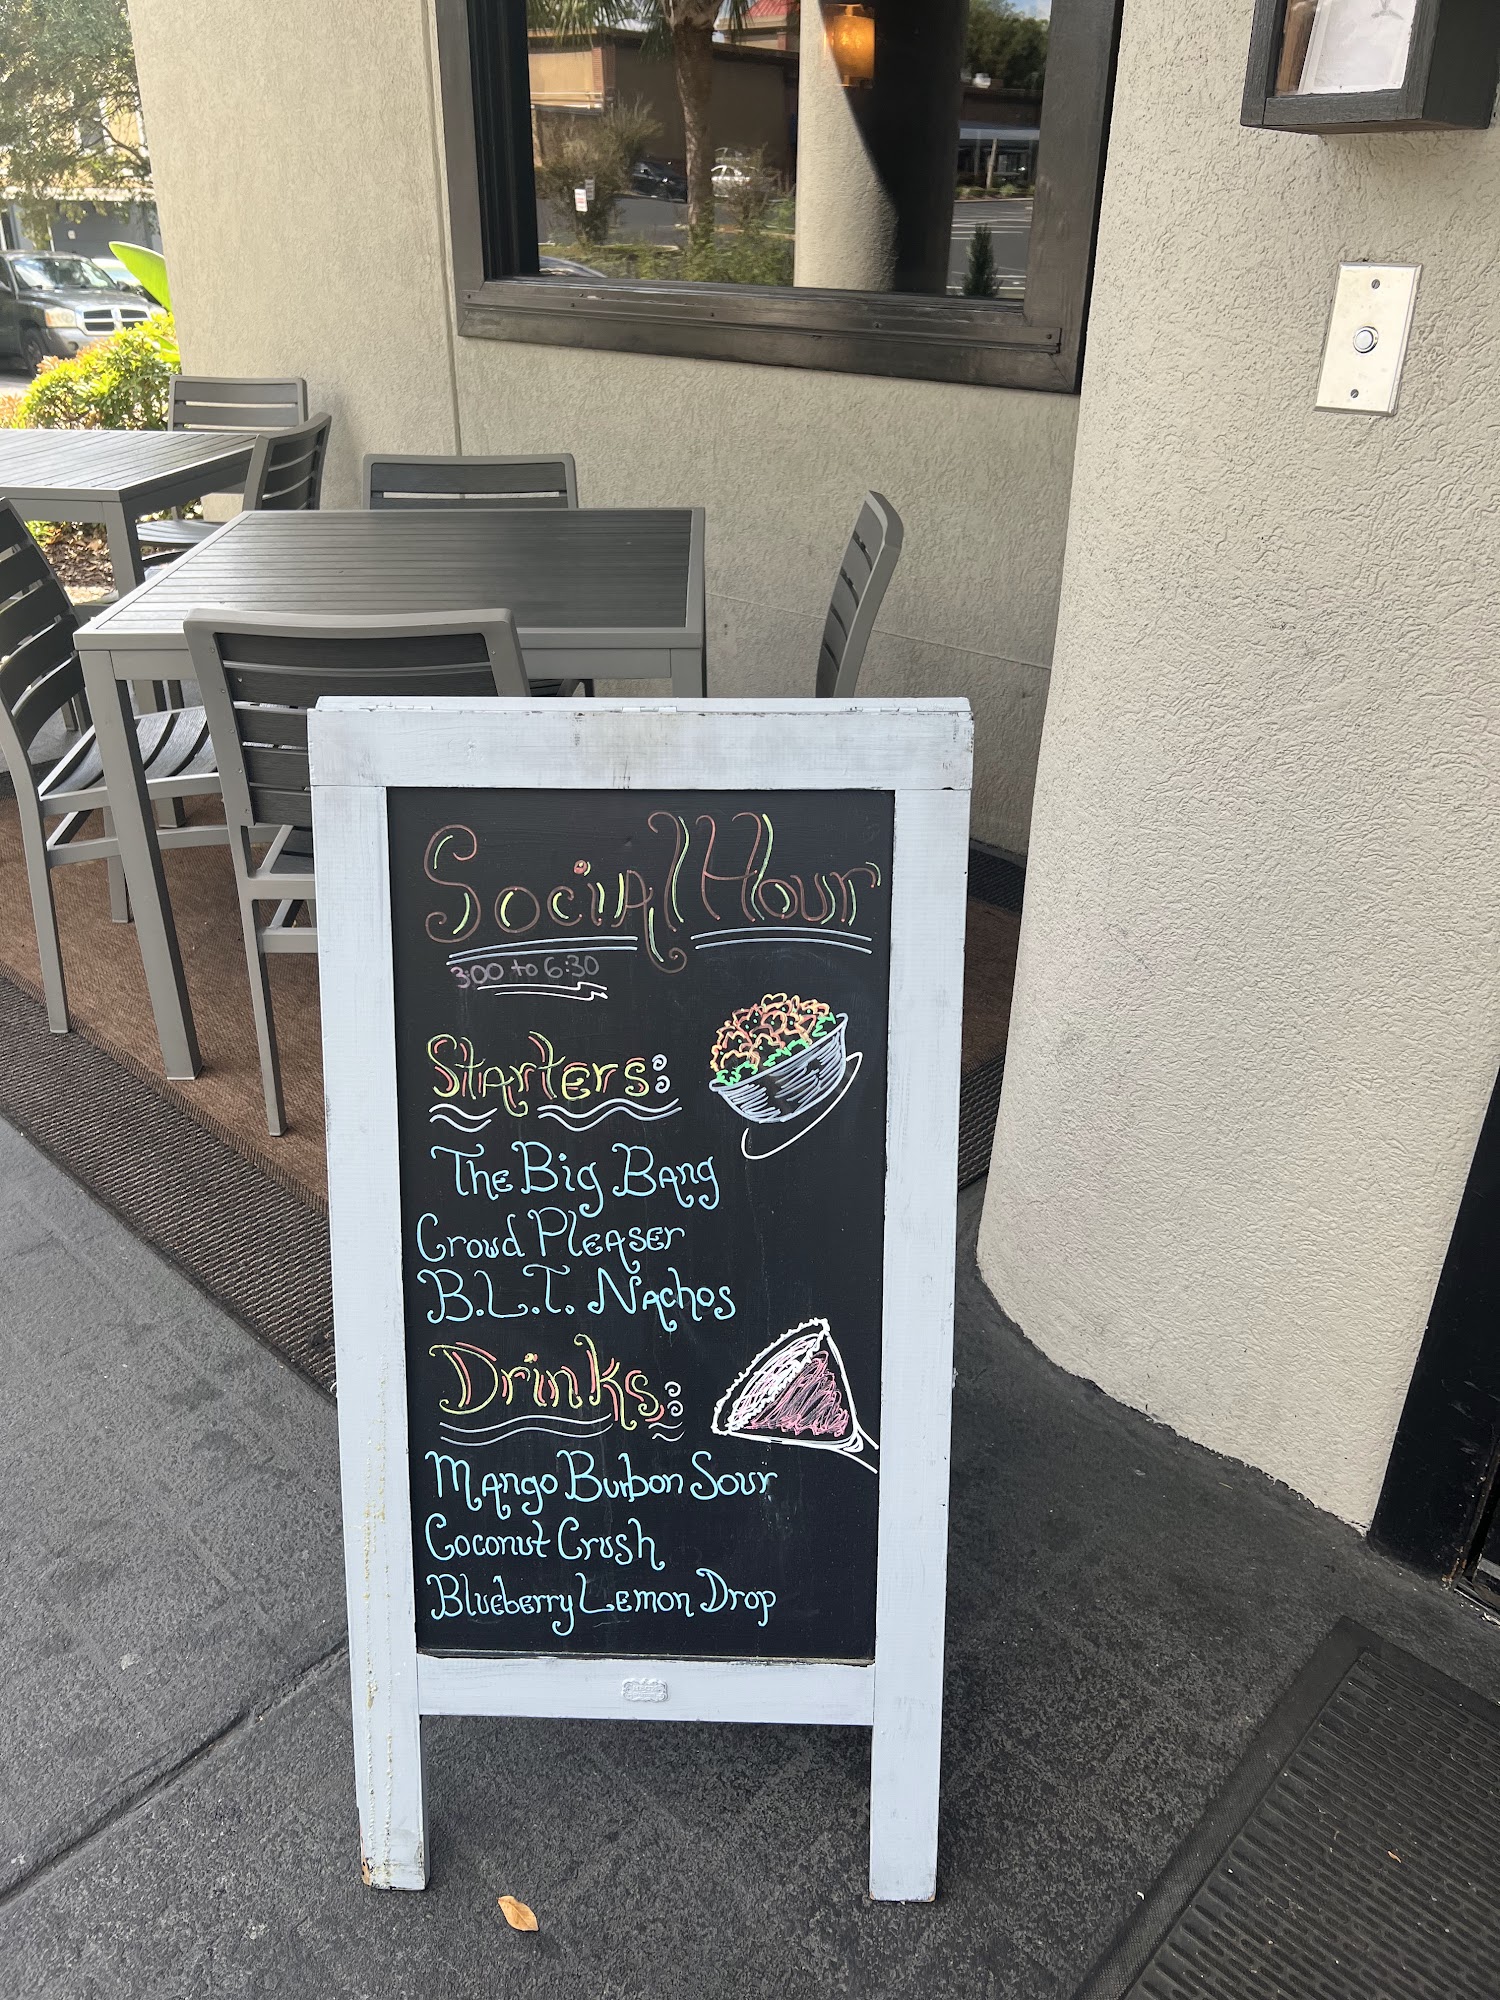 Social Hour
3:00 to 6:30
Starters:
The Big Bang
Crowd Pleaser
B.L.T. Nachos
Drinks:
Mango Burbon Sour
Coconut Crush
Blueberry Lemon Drop